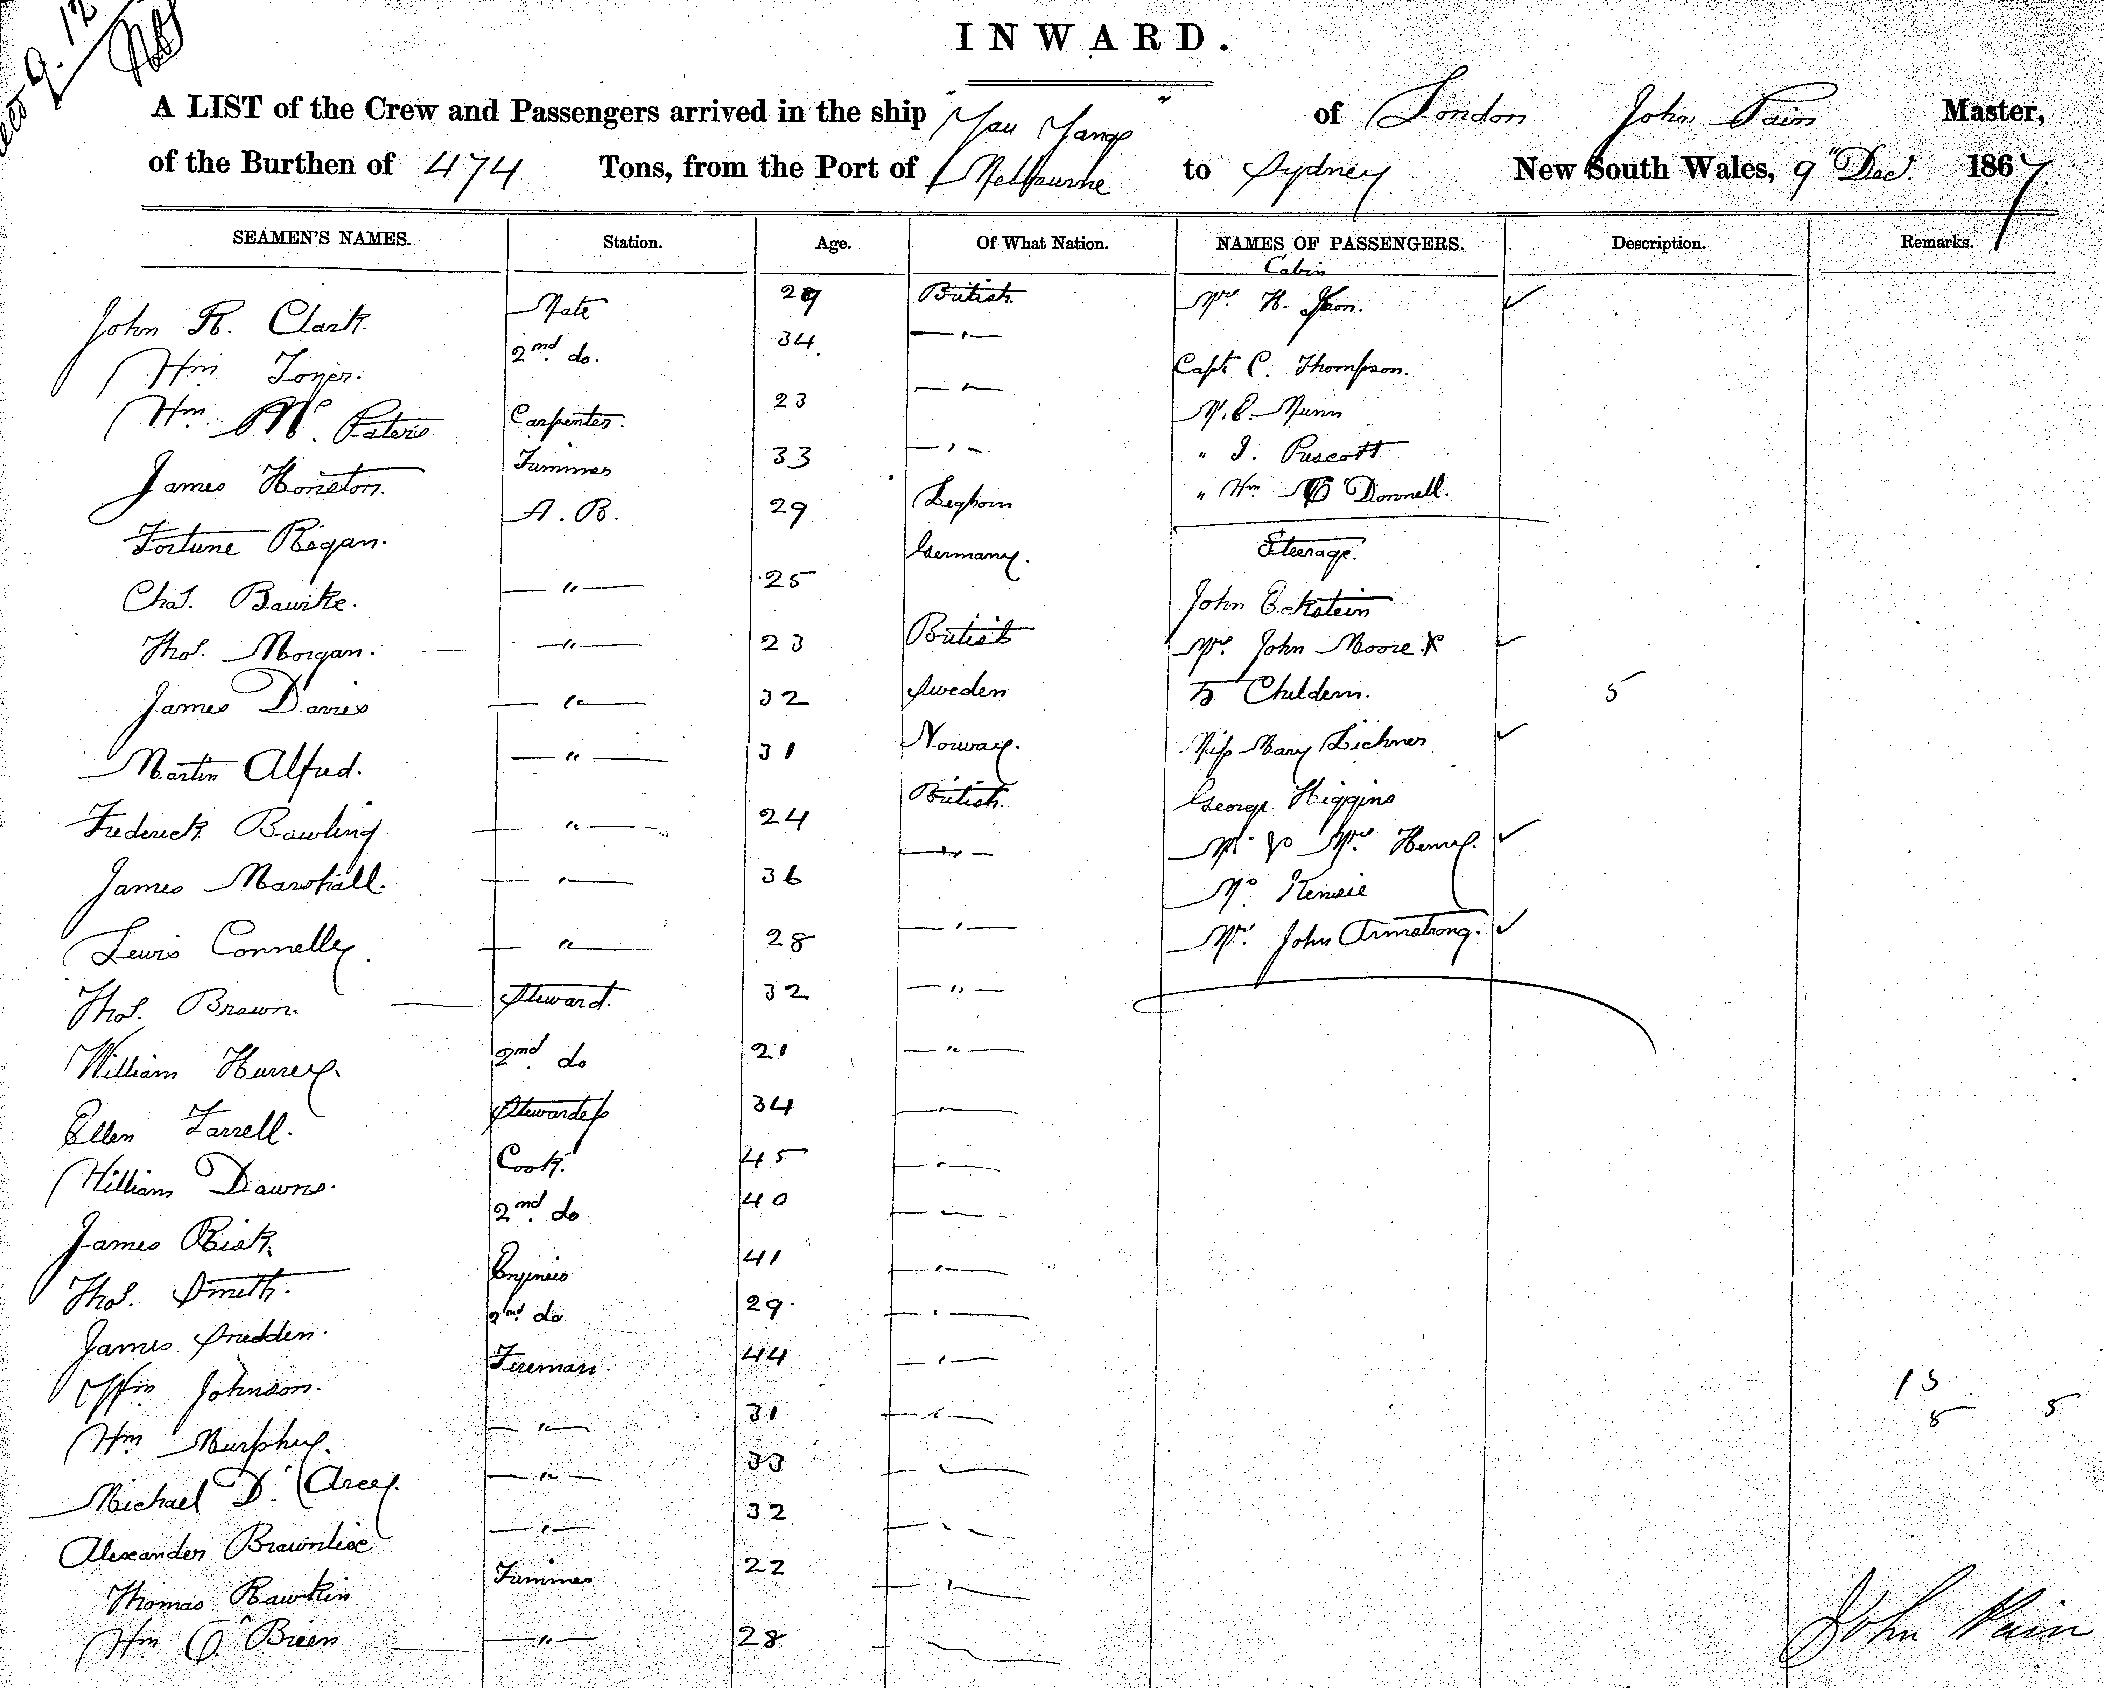 9. 12
INWARD.
A LIST of the Crew and Passengers arrived in the ship "You Yangs" of London John Pain Master,
of the Burthen of 474 Tons, from the Port of Melbourne to Sydney New South Wales, 9" Dec. 1867
SEAMEN'S NAMES. Station. Age. Of What Nation. NAMES OF PASSENGERS. Description. Remarks.
Cabin
John R. Clark Mate 29 British Mrs. H. ✓
Wm Toner. 2nd do. 34 — " — Capt C. Thompson.
Wm Mc. Peters Carpenter. 23 — " — M. C. Munn
James Houston. Trimmer 33 — " — " J. Prescott
Fortune Regan. A. B. 29 Leghorn " Wm Mc Donnell.
Steerage.
Chas. Bawike. — " — 25 Germany. John Eckstein
Thos. Morgan. — " — 23 British Mrs. John Moore & ✓
James Davies — " — 32 Sweden 5 Childern. 5
Martin Alfred. — " — 31 Norway. Miss Mary Lichner ✓
Frederick Bawling — " — 24 British. George Higgins
James Marshall. — " — 36 — " — Mr. & Mrs. Henry. ✓
Mc. Kensie
Lewis Connelly. — " — 28 — " — Mrs. John Armstrong. ✓
Thos. Brown. Steward. 32 — " —
William Hurrey. 2nd do 21 — " —
Ellen Farrell. Stewardess 34 — " —
William Dawns. Cook. 45 — " —
James Risk. 2nd do 40 — " —
Thos. Smith. Engineer 41 — " —
James Snedden. 2nd do 29. — " —
Wm Johnson. Fireman. 44 — " —
13
Wm Murphy. — " — 31 — " — 5 5
Michael D'Arcey. — " — 33 — " —
Alexander Brownlie — " — 32 — " —
Thomas Rawkin Trimmer 22 — " —
Wm O'Brien — " — 28 —
John Pain